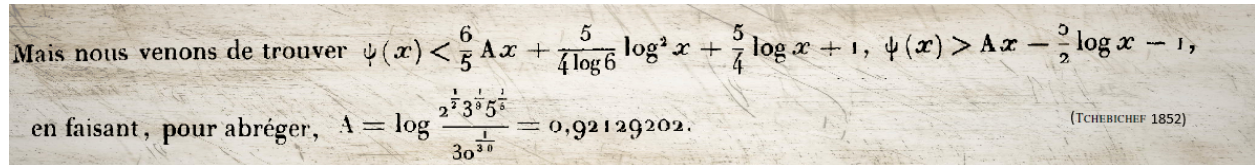 Mais nous venons de trouver ψ(x) < 6/5 Ax + 5/(4 log 6) log² x + 5/4 log x + 1, ψ(x) > Ax − 5/2 log x − 1,
en faisant, pour abréger, A = log (2^(1/2) 3^(1/3) 5^(1/5))/(30^(1/30)) = 0,92129202.
(TCHEBICHEF 1852)